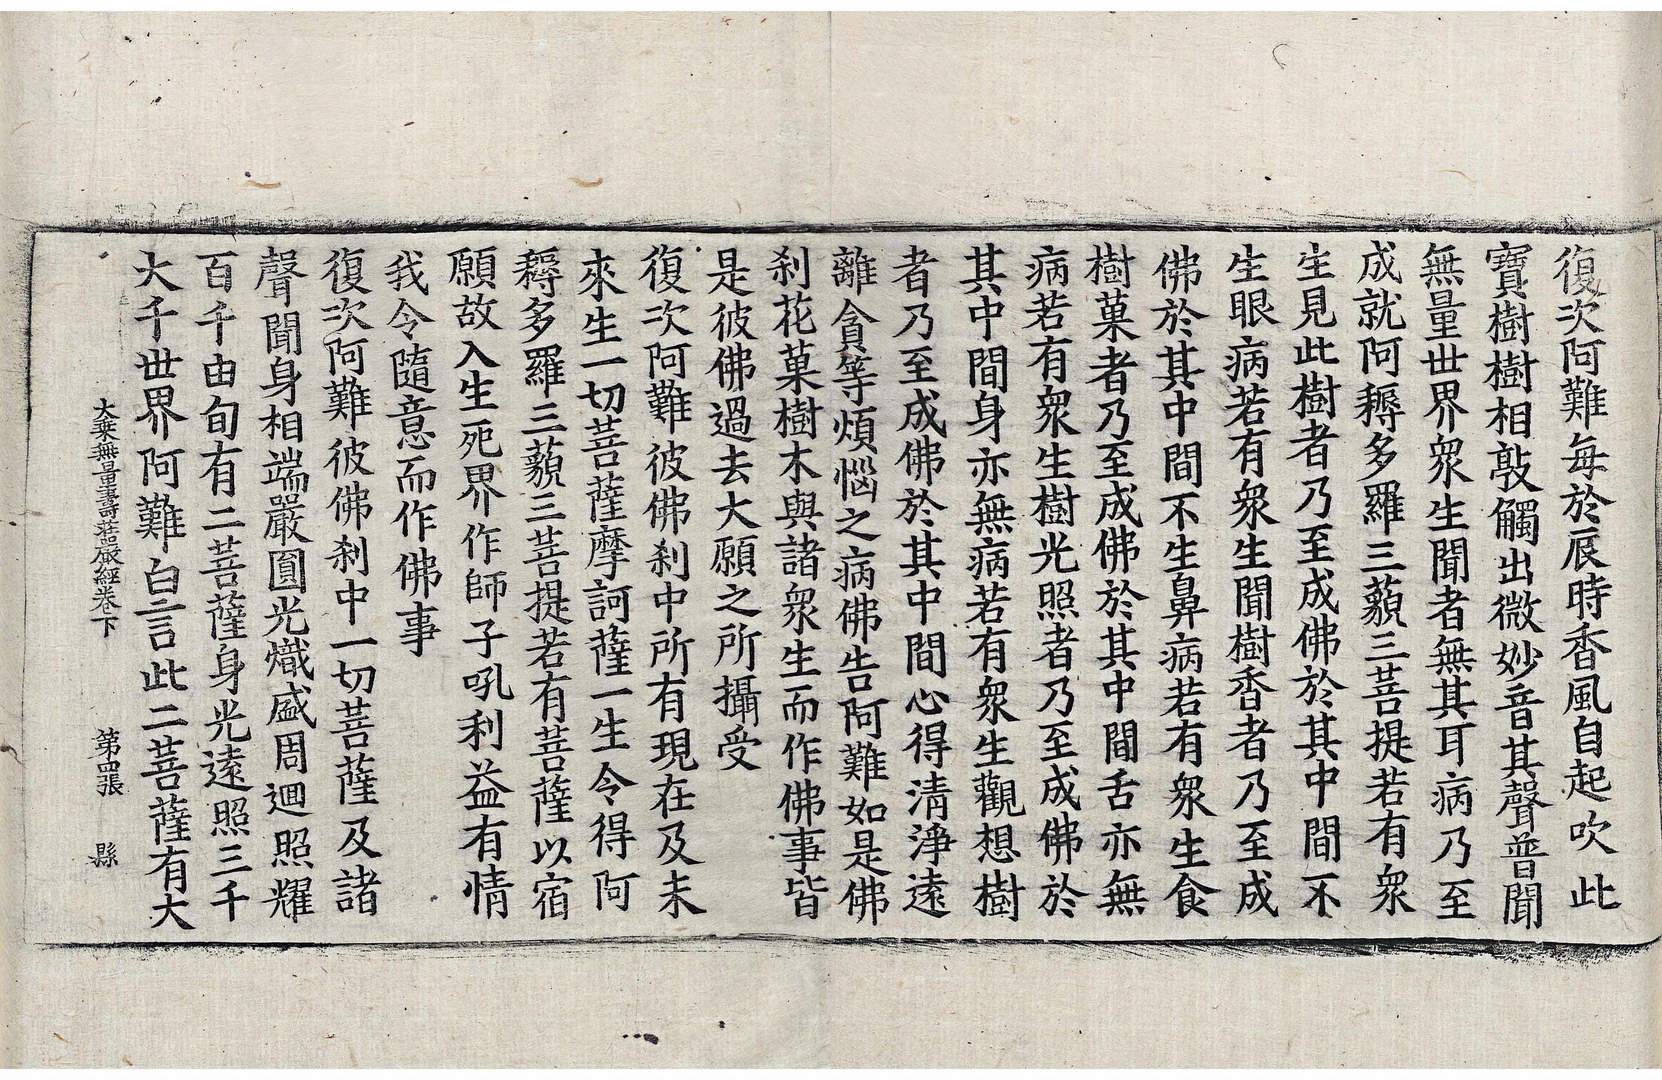 復次阿難每於辰時香風自起吹此
寶樹樹相敲觸出微妙音其聲普聞
無量世界衆生聞者無其耳病乃至
成就阿耨多羅三藐三菩提若有衆
生見此樹者乃至成佛於其中間不
生眼病若有衆生聞樹香者乃至成
佛於其中間不生鼻病若有衆生食
樹菓者乃至成佛於其中間舌亦無
病若有衆生樹光照者乃至成佛於
其中間身亦無病若有衆生觀想樹
者乃至成佛於其中間心得清淨遠
離貪等煩惱之病佛告阿難如是佛
刹花菓樹木與諸衆生而作佛事皆
是彼佛過去大願之所攝受
復次阿難彼佛刹中所有現在及未
來生一切菩薩摩訶薩一生令得阿
耨多羅三藐三菩提若有菩薩以宿
願故入生死界作師子吼利益有情
我令隨意而作佛事
復次阿難彼佛刹中一切菩薩及諸
聲聞身相端嚴圓光熾盛周迴照耀
百千由旬有二菩薩身光遠照三千
大千世界阿難白言此二菩薩有大
大乘無量壽莊嚴經卷下 第四張 縣